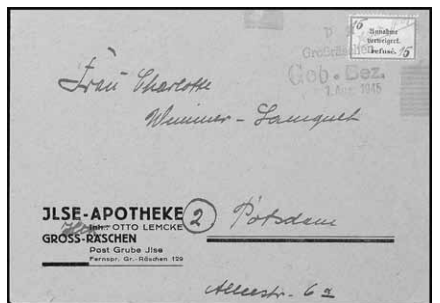 15 Annahme
verweigert.
Refusé. 15
Grossräschen
Geb. Bez.
1945
Frau Charlotte
Wimmer-Lamquet
JLSE-APOTHEKE
Inh.: OTTO LEMCKE
GROSS-RÄSCHEN
Post Grube Jlse
Fernspr. Gr.-Räschen 129
2 Potsdam
Alleestr. 6